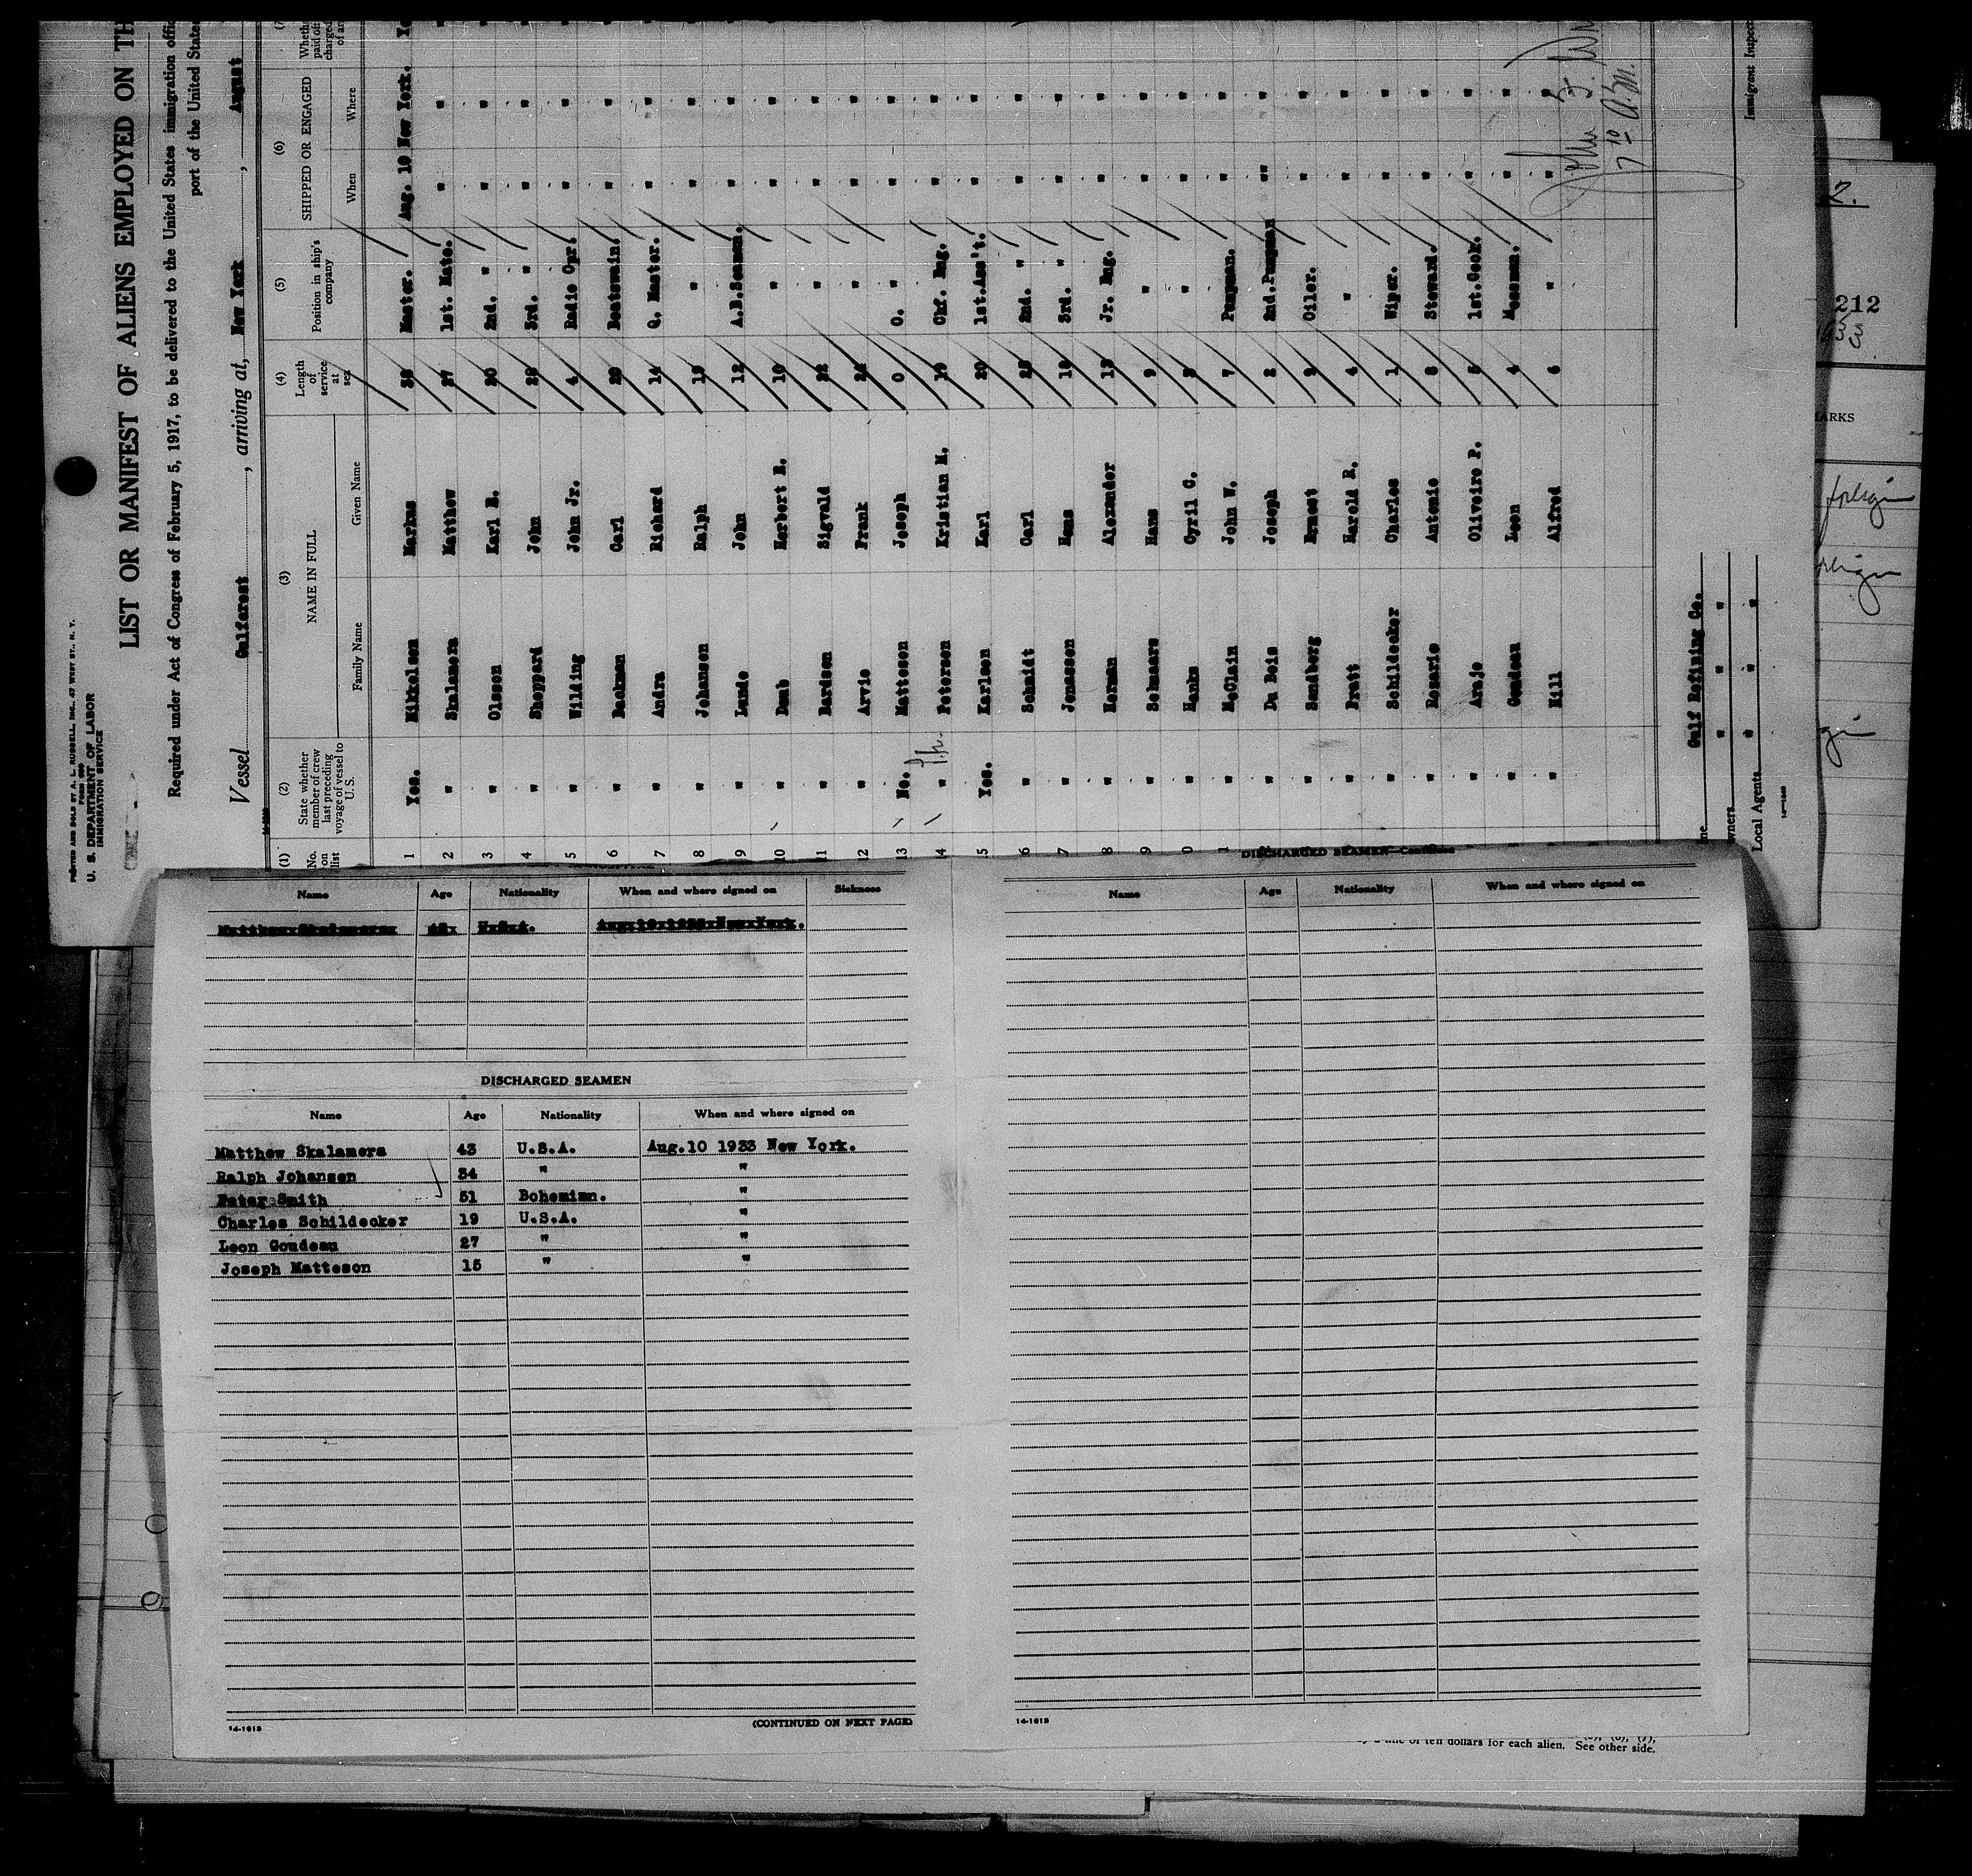 PRINTED AND SOLD BY A. L. RUSSELL, INC., 47 WEST ST., N. Y.
FORM 680
U. S. DEPARTMENT OF LABOR
IMMIGRATION SERVICE
LIST OR MANIFEST OF ALIENS EMPLOYED ON TH
Required under Act of Congress of February 5, 1917, to be delivered to the United States immigration offi
port of the United State
Vessel Gulfcrest, arriving at, New York, August
(1) (2) (3) (4) (5) (6) (7)
No. on list State whether member of crew last preceding voyage of vessel to U. S. NAME IN FULL Length of service at sea Position in ship's company SHIPPED OR ENGAGED Wheth paid off charged of ar
Family Name Given Name When Where
1 Yes. Mikkelsen Markus 36 Master. Aug. 10 New York. Ye
2 " Skalamera Matthew 27 1st. Mate. " "
3 " Olsson Karl B. 20 2nd. " " "
4 " Sheppard John 28 3rd. " " "
5 " Wilding John Jr. 4 Radio Opr. " "
6 " Backman Carl 20 Boatswain. " "
7 " Andra Richard 14 Q. Master. " "
8 " Johansen Ralph 15 " " "
9 " Lunde John 12 A.B.Seaman. " "
10 " Dumb Herbert E. 10 " " "
11 " Bardsen Sigvald 22 " " "
12 " Arvio Frank 24 " " "
13 No. Matteson Joseph 0 O. " " "
14 " Petersen Kristian M. 19 Chf. Eng. " "
15 Yes. Karlsen Karl 20 1st.Ass't. " "
6 " Schmidt Carl 25 2nd. " " "
7 " Jonassen Hans 18 3rd. " " "
8 " Herman Alexander 15 Jr. Eng. " "
9 " Schmaars Hans 9 " " "
0 " Hanks Cyril C. 3 " " "
1 " McClain John W. 7 Pumpman. " "
" Du Bois Joseph 2 2nd.Pumpman "" "
" Sandberg Ernest 9 Oiler. " "
" Pratt Harold R. 4 " " "
" Schildecker Charles 1 Wiper. " "
" Rosario Antonio 8 Steward. " "
" Arajo Oliveiro P. 5 1st.Cook. " "
" Goudeau Leon 4 Messman. " "
" Hill Alfred 6 " " "
ne Gulf Refining Co.
wners " " "
Local Agents " " "
14—1240
John
7 10 A.M.
Immigrant Inspect
7.
212
ARKS
foreign
oreign
gn
Name Age Nationality When and where signed on Sickness
Matthew Skalamera 43 U.S.A. Aug.10 1933 New York.
DISCHARGED SEAMEN
Name Age Nationality When and where signed on
Matthew Skalamera 43 U.S.A. Aug.10 1933 New York.
Ralph Johansen 34 " "
Peter Smith 51 Bohemian. "
Charles Schildecker 19 U.S.A. "
Leon Goudeau 27 " "
Joseph Matteson 15 " "
14-1613 (CONTINUED ON NEXT PAGE)
DISCHARGED SEAMEN—Continued
Name Age Nationality When and where signed on
14-1613
of ten dollars for each alien. See other side.